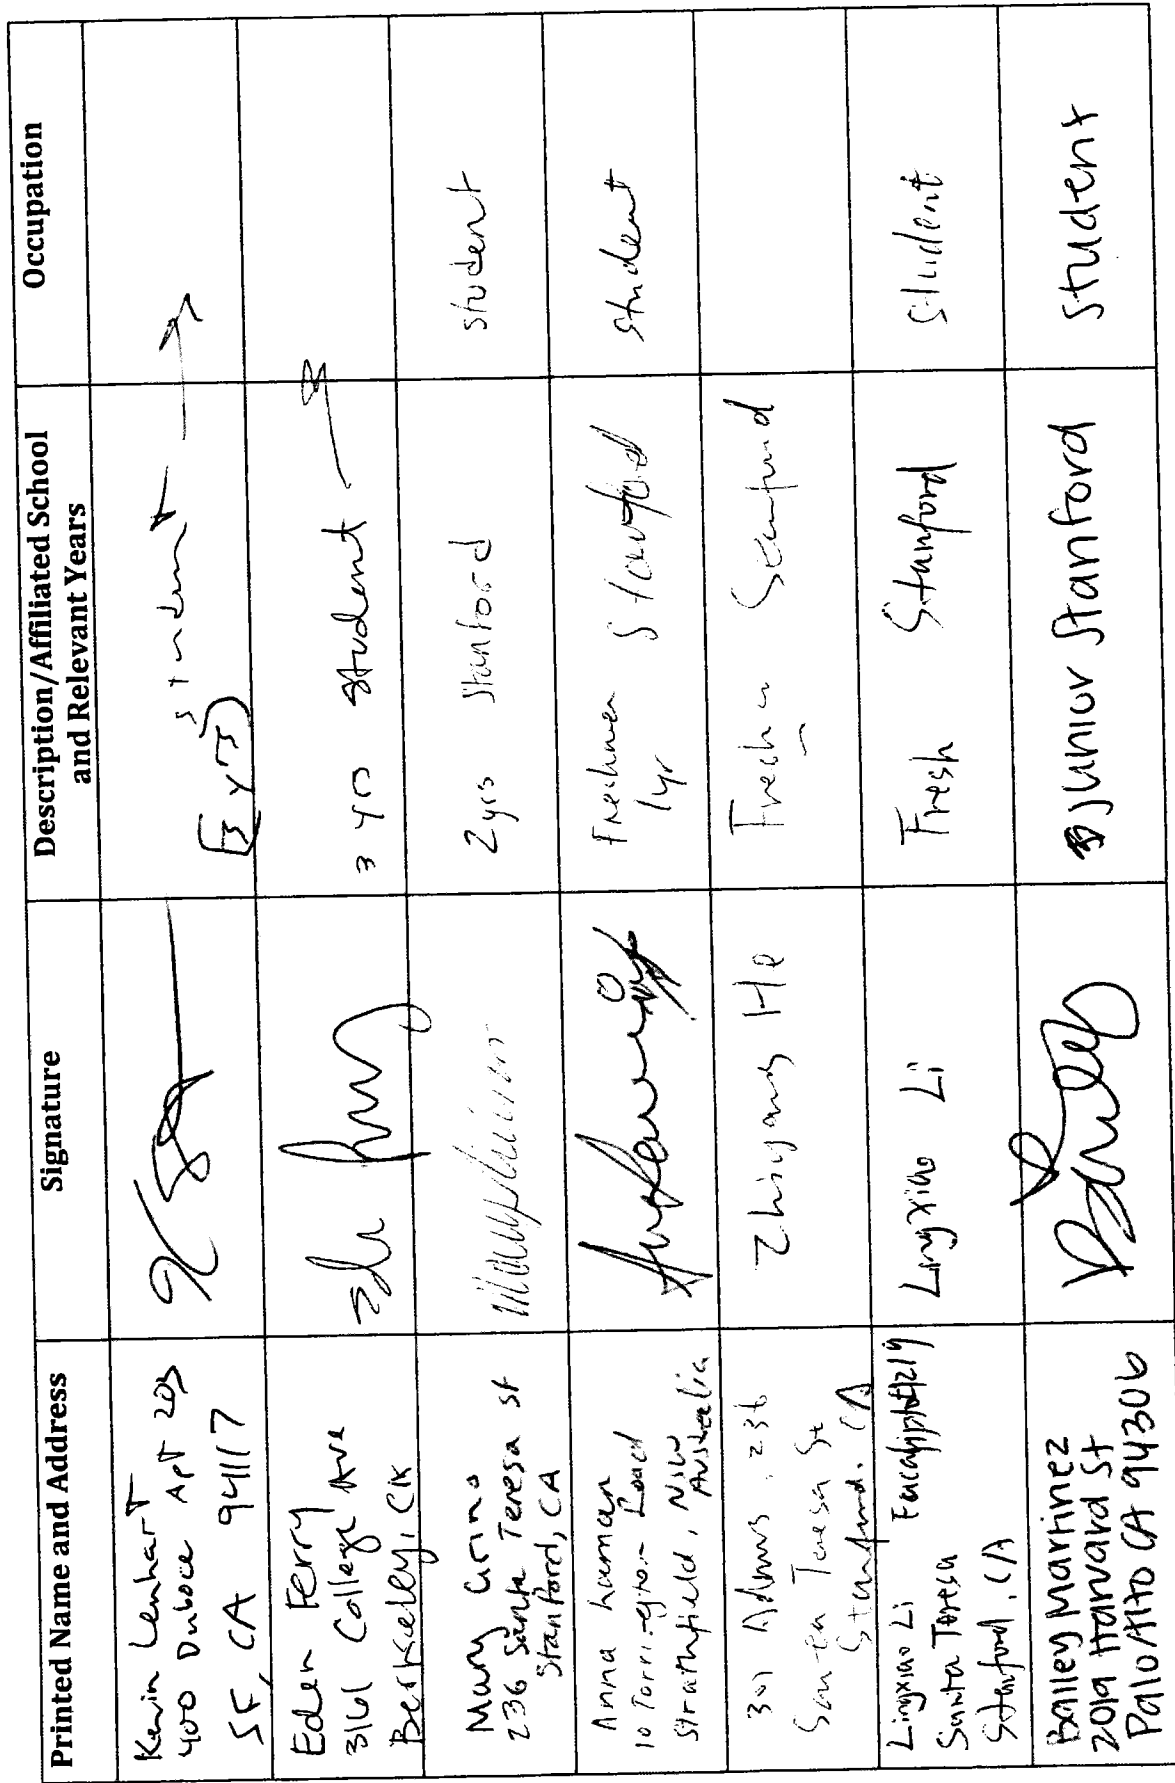 Printed Name and Address
Signature
Description/Affiliated School
and Relevant Years
Occupation
Kevin Lenhart
400 Duboce Apt 203
SF, CA 94117
student
Eden Ferry
3161 College Ave
Berkeley, CA
3 yrs student
Mary Cirino
236 Santa Teresa St
Stanford, CA
2 yrs Stanford
student
Anna
10 Torrington Road
Strathfield, NSW
Australia
Freshman Stanford
1yr
student
301 Adams, 236
Santa Teresa St
Stanford, CA
Zhiyang He
Stanford
Lingxiao Li
Santa Teresa
Stanford, CA
Lingxiao Li
Fresh Stanford
student
Bailey Martinez
2019 Harvard St
Palo Alto CA 94306
Bailey
Junior Stanford
student